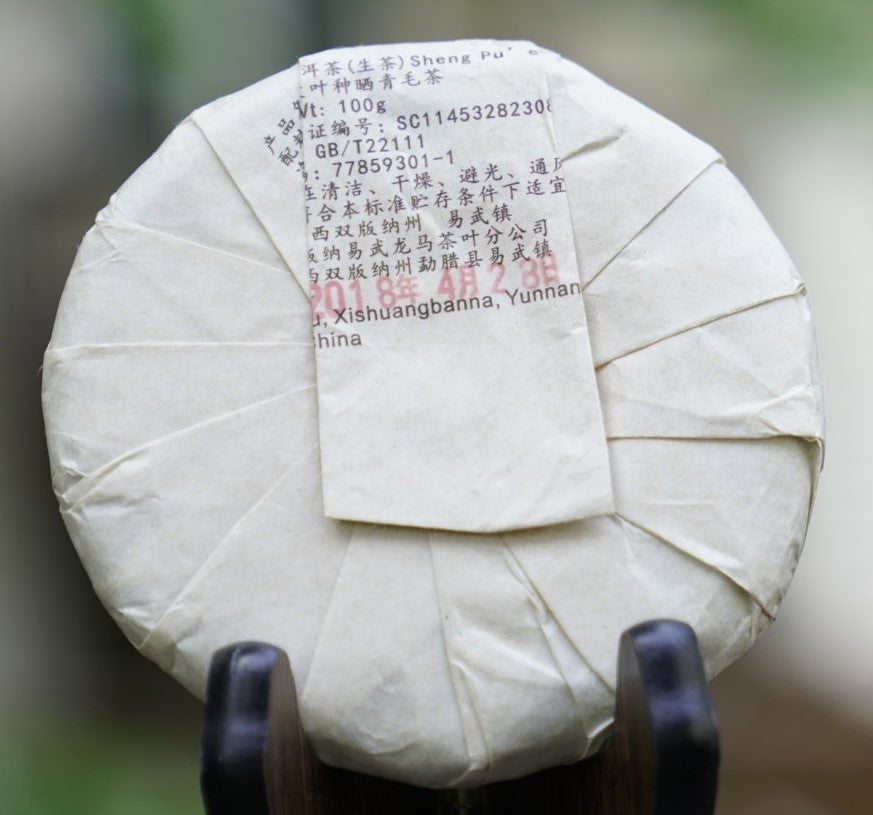 洱茶(生茶)Sheng Pu'e
叶种晒青毛茶
Wt: 100g
产品
证编号: SC11453282308
配
GB/T22111
: 77859301-1
在清洁、干燥、避光、通风
符合本标准贮存条件下适宜
西双版纳州 易武镇
版纳易武龙马茶叶分公司
西双版纳州勐腊县易武镇
2018年 4月28日
, Xishuangbanna, Yunnan
hina